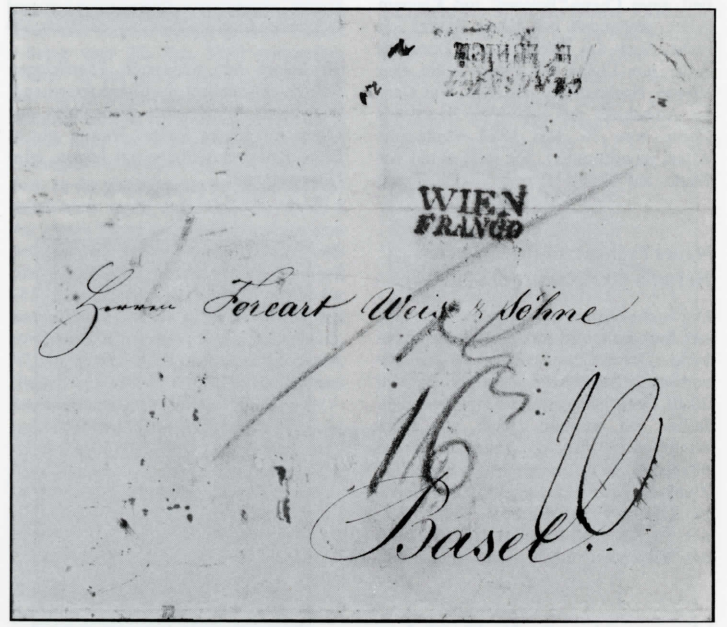 WIEN
FRANCO
Herren Forcart Weis & Söhne
16
10
Basel.